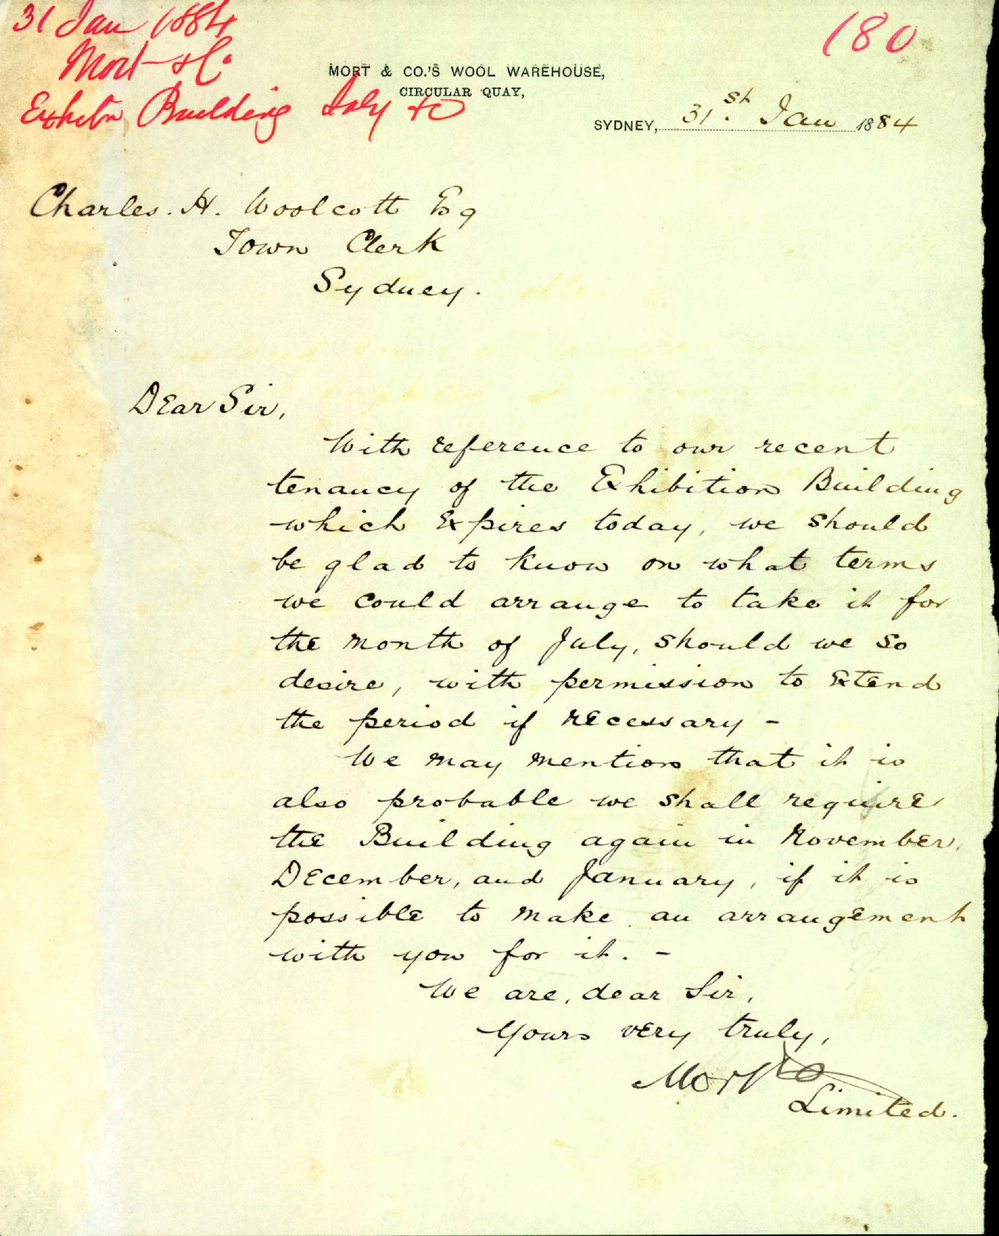 31 Jan 1884
Mort & Co
Exhibtn Building July &c
180
MORT & CO.'S WOOL WAREHOUSE,
CIRCULAR QUAY,
SYDNEY, 31st Jan 1884
Charles. H. Woolcott Esq
Town Clerk
Sydney.
Dear Sir,
With reference to our recent
tenancy of the Exhibition Building
which expires today, we should
be glad to know on what terms
we could arrange to take it for
the month of July, should we so
desire, with permission to extend
the period if necessary -
We may mention that it is
also probable we shall require
the Building again in November,
December, and January, if it is
possible to make an arrangement
with you for it. -
We are, dear Sir,
Yours very truly,
Mort & Co
Limited.